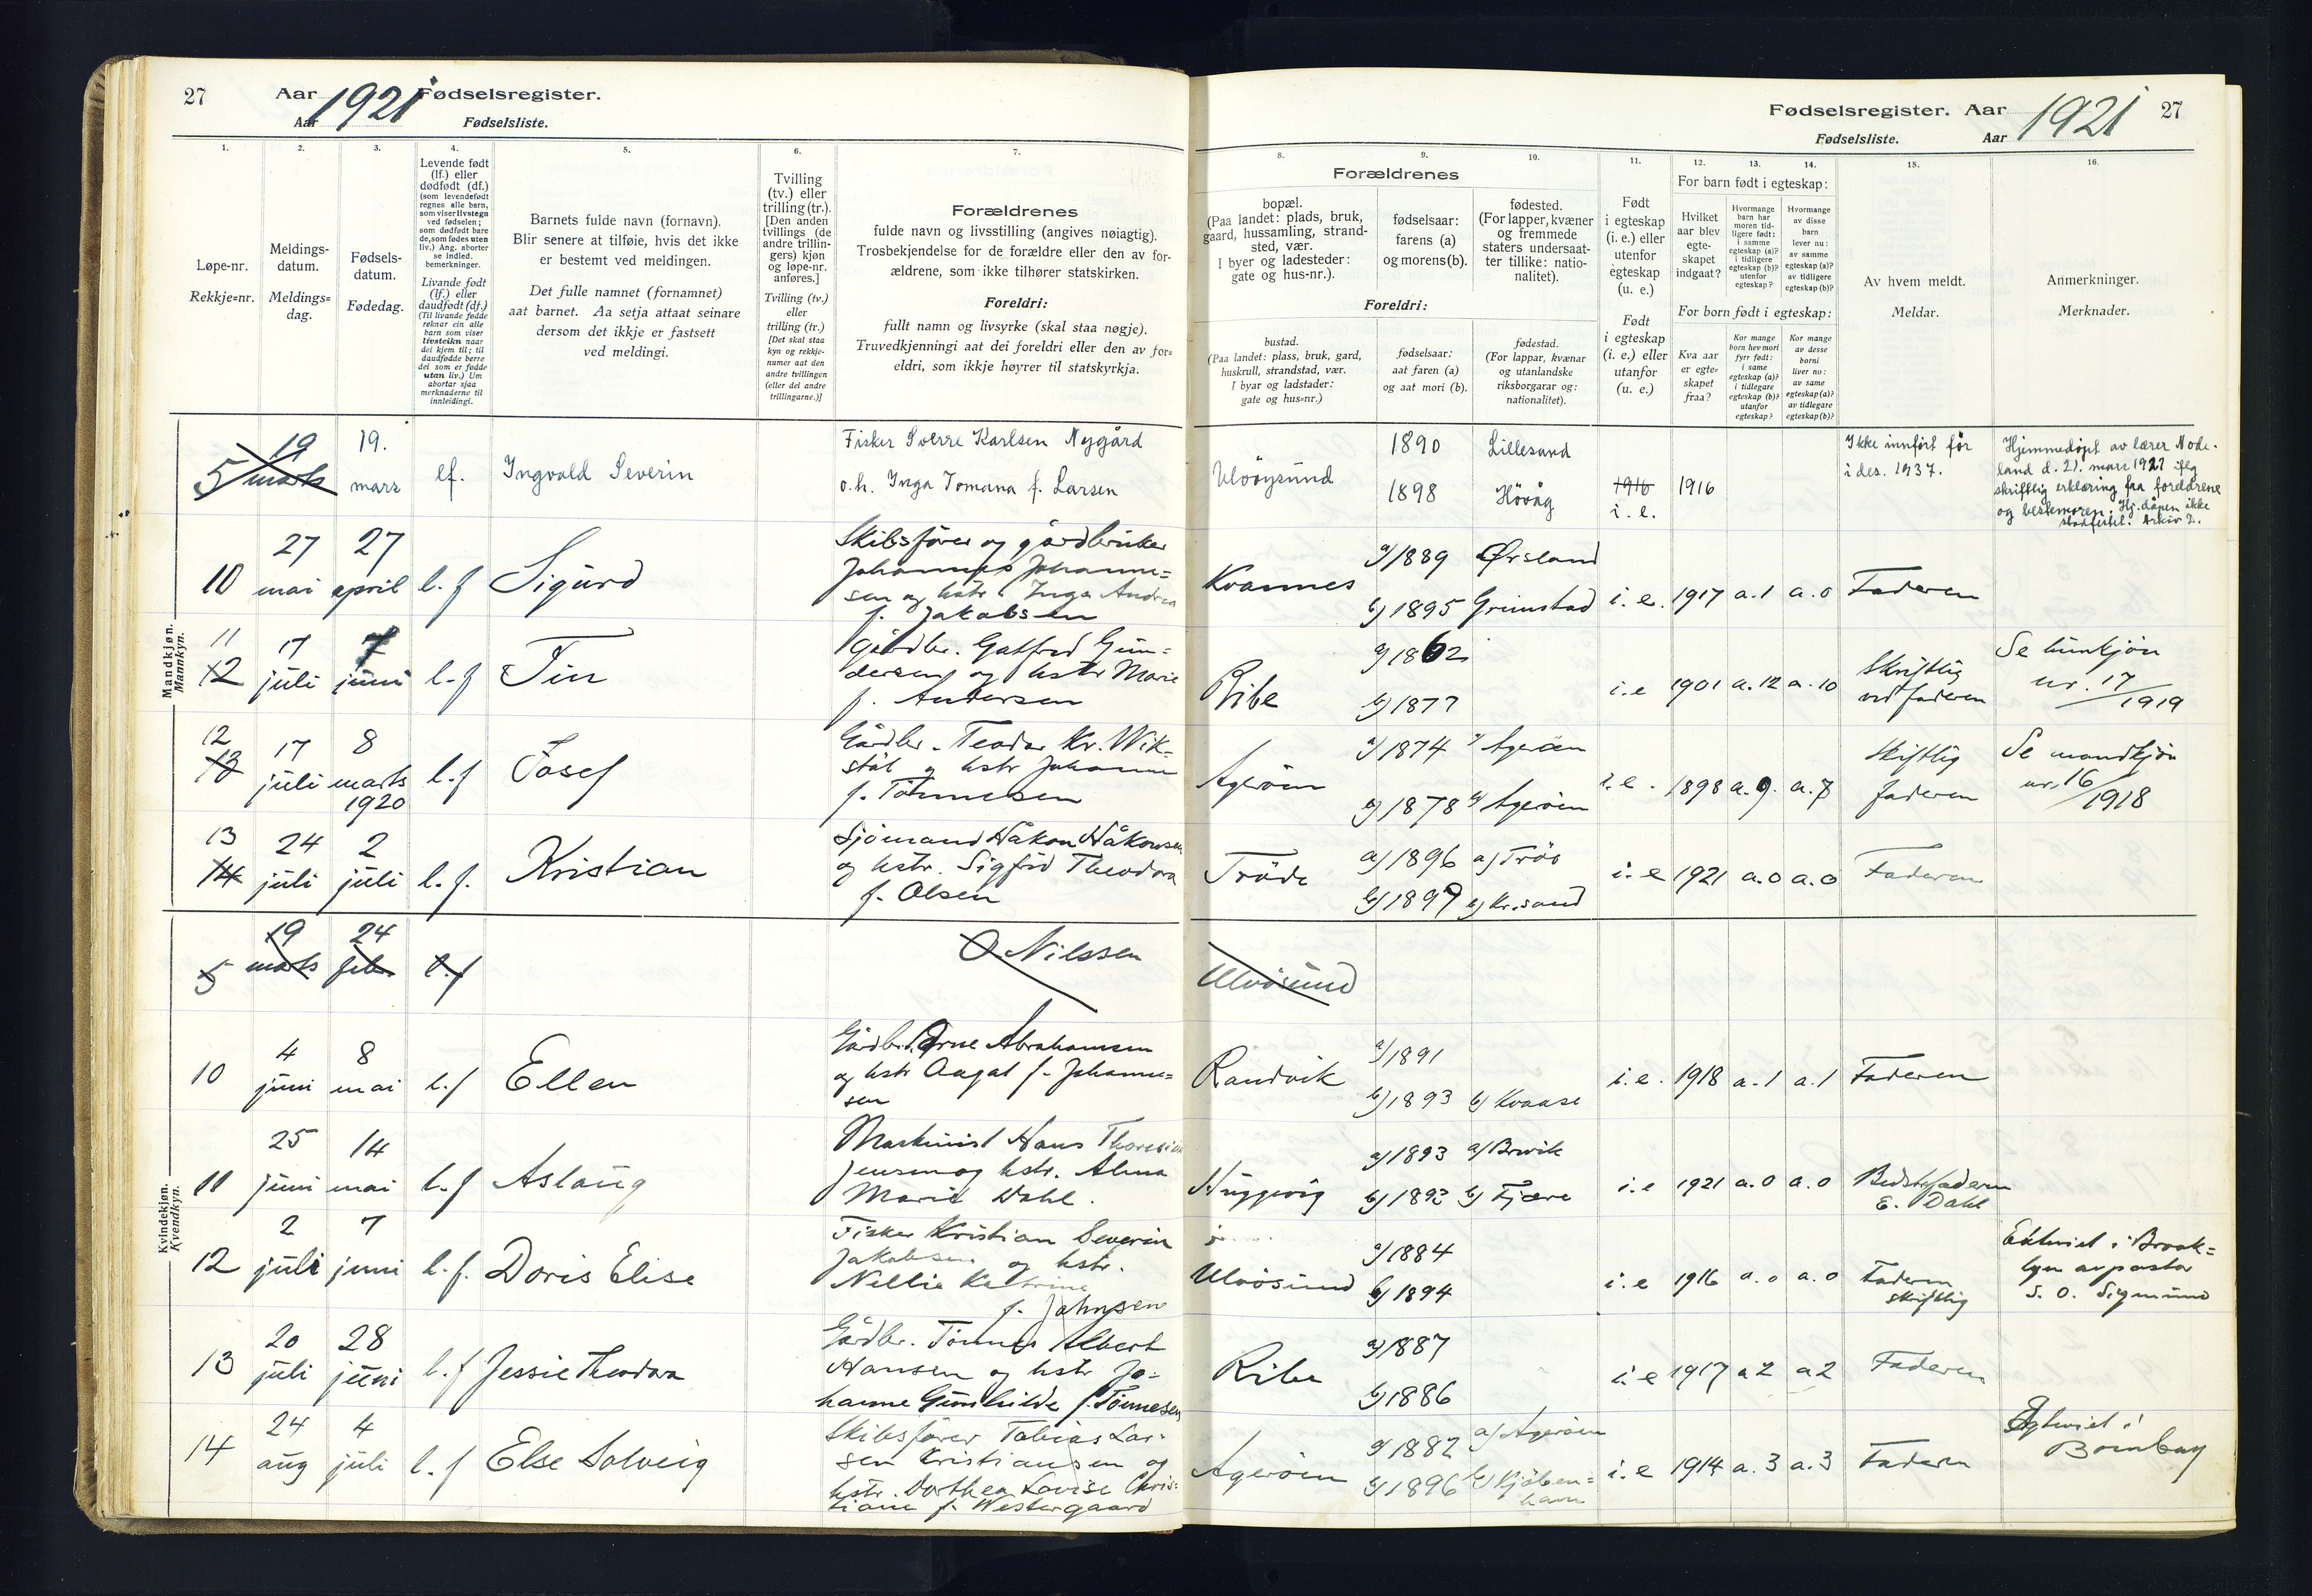 27
Aar 1921 Fødselsregister.
Aar Fødselsliste.
1.
2.
3.
4.
5.
6.
7.
Løpe-nr.
Rekkje=nr.
Meldings-
datum.
Meldings=
dag.
Fødsels-
datum.
Fødedag.
Levende født
(lf.) eller
dødfødt (df.)
(som levendefødt
regnes alle barn,
som viser livstegn
ved fødselen;
som dødfødt bare
de, som fødes uten
liv.) Ang. aborter
se indled.
bemerkninger.
Livande født
(lf.) eller
daudfødt (df.)
(Til livande fødde
reknar ein alle
barn som viser
livsteikn naar
dei kjem til; til
daudfødde berre
dei som er fødde
utan liv.) Um
abortar sjaa
merknaderne til
innleidingi.
Barnets fulde navn (fornavn).
Blir senere at tilføie, hvis det ikke
er bestemt ved meldingen.
Det fulle namnet (fornamnet)
aat barnet. Aa setja attaat seinare
dersom det ikkje er fastsett
ved meldingi.
Tvilling
(tv.) eller
trilling (tr.).
[Den anden
tvillings (de
andre trillin-
gers) kjøn
og løpe-nr.
anføres.]
Tvilling (tv.)
eller
trilling (tr.)
[Det skal staa
kyn og rekkje-
numer aat den
andre tvillingen
(eller dei andre
trillingarne.)]
Forældrenes
fulde navn og livsstilling (angives nøiagtig).
Trosbekjendelse for de forældre eller den av for-
ældrene, som ikke tilhører statskirken.
Foreldri:
fullt namn og livsyrke (skal staa nøgje).
Truvedkjenningi aat dei foreldri eller den av for=
eldri, som ikkje høyrer til statskyrkja.
Mandkjøn.
Mannkyn.
5 19 marts 19. mars lf. Ingvald Severin
Fisker Sverre Karlsen Nygård
o.h. Inga Tomana f. Larsen
10 27 mai 27 april l.f Sigurd
Skibsfører og gårdbruker
Johannes Johanne=
sen og hstr Inga Andrea
f. Jakobsen
11 12 17 juli 7 juni l.f Tin
Gårdbr. Gotfred Gun=
dersen og hstr Marie
f. Andersen
12 13 17 juli 8 marts 1920 l.f Josef
Gårdbr. Teodor Kr. Wik=
støl og hstr Johanne
f. Tönnesen
13 14 24 juli 2 juli l.f. Kristian
Sjömand Håkon Håkonsen
og hstr. Sigfrid Theodora
f. Olsen
Kvindekjøn.
Kvendkyn.
5 19 marts 24 feb. l.f
O Nilssen
10 4 juni 8 mai l.f Ellen
Gårdbr. Arne Abrahamsen
og hstr Aagot f. Johanne=
sen
11 25 juni 14 mai l.f Aslaug
Maskinist Hans
Jensen og hstr. Alma
Marie Dahl.
12 2 juli 7 juni l.f. Doris Elise
Fisker Kristian Severin
Jakobsen og hstr.
Nellie Katrine
f. Johnsen
13 20 juli 28 juni l.f Jessie Theodora
Gårdbr. Tönnes Albert
Hansen og hstr Jo=
hanne Gunhilde f. Tönnesen
14 24 aug 4 juli l.f Else Solveig
Skibsfører Tobias Lar=
sen Kristiansen og
hstr. Dorthea Lovise Chris=
tiane f. Westergaard
Fødselsregister. Aar 1921 27
Fødselsliste. Aar
8.
9.
10.
11.
12.
13.
14.
15.
16.
Forældrenes
bopæl.
(Paa landet: plads, bruk,
gaard, hussamling, strand-
sted, vær.
I byer og ladesteder:
gate og hus-nr.).
fødselsaar:
farens (a)
og morens (b).
fødested.
(For lapper, kvæner
og fremmede
staters undersaat-
ter tillike: natio-
nalitet).
Foreldri:
bustad.
(Paa landet: plass, bruk, gard,
huskrull, strandstad, vær.
I byar og ladstader:
gate og hus=nr.)
fødselsaar:
aat faren (a)
og aat mori (b).
fødestad.
(For lappar, kvænar
og utanlandske
riksborgarar og:
nationalitet).
Født
i egteskap
(i. e.) eller
utenfor
egteskap
(u. e.)
Født
i egteskap
(i. e.) eller
utanfor
(u. e.)
For barn født i egteskap:
Hvilket
aar blev
egte-
skapet
indgaat?
Hvormange
barn har
moren tid-
ligere født:
i samme
egteskap (a)?
i tidligere
egteskap (b)?
utenfor
egteskap?
Hvormange
av disse
barn
lever nu:
av samme
egteskap (a)?
av tidligere
egteskap (b)?
For born født i egteskap:
Kva aar
er egte=
skapet
fraa?
Kor mange
born hev mori
fyrr født:
i same
egteskap (a)?
i tidlegare
egteskap (b)?
utanfor
egteskap?
Kor mange
av desse
borni
liver no:
av same
egteskap (a)?
av tidlegare
egteskap (b)?
Av hvem meldt.
Meldar.
Anmerkninger.
Merknader.
Ulvöysund 1890 Lillesand 1898 Hövåg 1916 i.e. 1916
Ikke innført før
i des. 1937.
Hjemmedøpt av lærer Node-
land d. 21. mars 1921 iflg
skriftlig erklæring fra foreldrene
og bestemoren. Hj.dåpen ikke
stadfestet. Arkiv 2.
Kvannes a) 1889 Ørsland b) 1895 Grimstad i.e. 1917 a.1 a.0 Faderen
Ribe a) 1862 b) 1877 i.e 1901 a.12 a.10
Skriftlig
ved faderen
Se kvinkjön
nr. 17/1919
Agerøen a) 1874 a) Agerøen b) 1878 b) Agerøen i.e. 1898 a.9. a.7
Skriftlig
faderen
Se mandkjön
nr. 16/1918
Tröde a) 1896 a) Tröe b) 1897 b) Kr.sand i.e 1921 a.0 a.0 Faderen
Ulvösund
Randvik a) 1891 b) 1893 b) Kvaase i.e. 1918 a.1 a.1 Faderen
a) 1893 b) 1892 b) Fjære i.e 1921 a.0 a.0
Bedstefaderen
E. Dahl
Ulvösund a) 1884 b) 1894 i.e 1916 a.0 a.0
Faderen
skriftlig
Ektviet i Brook=
lyn av pastor
S. O. Sigmund
Ribe a) 1887 b) 1886 i.e 1917 a 2 a 2 Faderen
Agerøen a) 1882 a) Agerøen b) 1896 b) Kjöben=
havn i.e 1914 a.3 a.3 Faderen
Egteviet i
Bombay